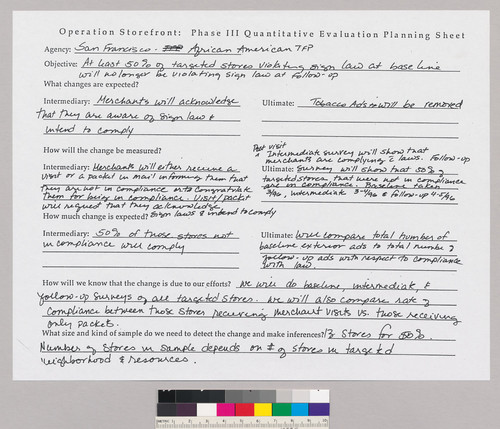 Operation Storefront: Phase III Quantitative Evaluation Planning Sheet
Agency: San Francisco - African American TFP
Objective: At least 50% of targeted stores violating sign law at baseline
will no longer be violating sign law at follow-up
What changes are expected?
Intermediary: Merchants will acknowledge
that they are aware of sign law &
intend to comply
Ultimate: Tobacco Ads will be removed
How will the change be measured?
Intermediary: Merchants will either receive a
visit or a packet in mail informing them that
they are not in compliance or to congratulate
them for being in compliance. Visit/packet
will request that they acknowledge
sign laws & intend to comply
Post visit
Intermediate survey will show that
merchants are complying c laws. Follow-up
Ultimate: Survey will show that 50% of
targeted stores that were not in compliance
are in compliance. Baseline taken
3/96, intermediate 3-4/96 & follow-up 4-5/96
How much change is expected?
Intermediary: 50% of those stores not
in compliance will comply
Ultimate: Will compare total number of
baseline exterior ads to total number of
follow-up ads with respect to compliance
with law.
How will we know that the change is due to our efforts? We will do baseline, intermediate, &
follow-up surveys of all targeted stores. We will also compare rate of
compliance between those stores receiving merchant visits vs. those receiving
only packets.
What size and kind of sample do we need to detect the change and make inferences? Stores for 50%.
Number of stores in sample depends on # of stores in targeted
neighborhood & resources.